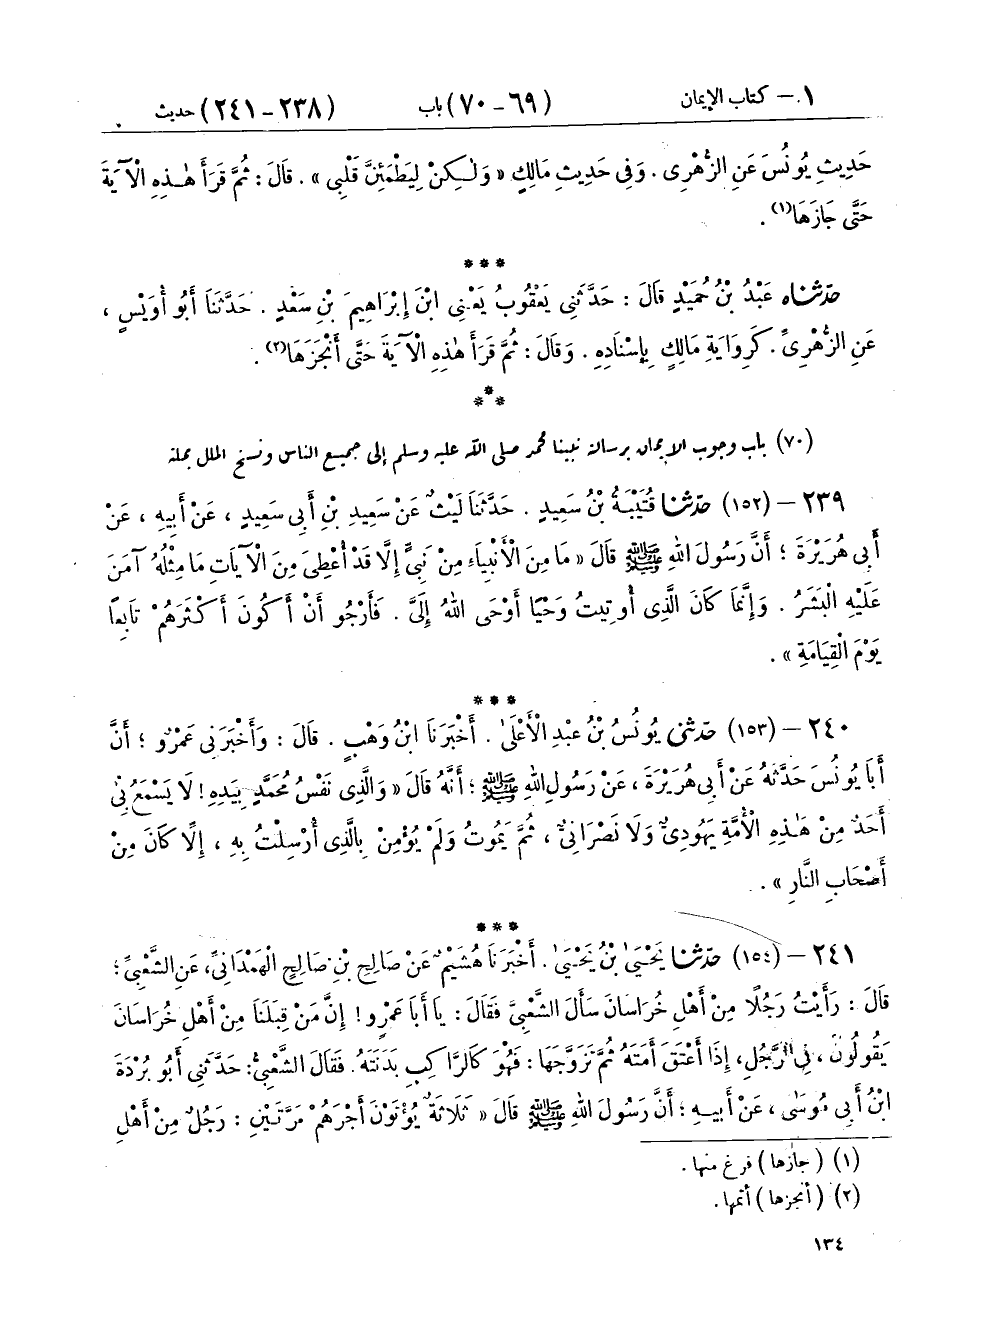 ١ – كتاب الإيمان (٦٩ – ٧٠) باب (٢٣٨ – ٢٤١) حديث
حَدِيثِ يُونُسَ عَنِ الزُّهْرِى . وَفِى حَدِيثِ مَالِكٍ « وَلَكِنْ لِيَطْمَئِنَّ قَلْبِى » . قَالَ : ثُمَّ قَرَأَ هَذِهِ الْآيَةَ
حَتَّى جَازَهَا(١) .
***
حدّثناه عَبْدُ بْنُ حُمَيْدٍ قَالَ : حَدَّثَنِى يَعْقُوبُ يَعْنِى ابْنَ إِبْرَاهِيمَ بْنِ سَعْدٍ . حَدَّثَنَا أَبُو أُوَيْسٍ ،
عَنِ الزُّهْرِىِّ . كَرِوَايَةِ مَالِكٍ بِإِسْنَادِهِ . وَقَالَ : ثُمَّ قَرَأَ هَذِهِ الْآيَةَ حَتَّى أَنْجَزَهَا(٢) .
***
(٧٠) باب وجوب الإيمان برسالة نبينا محمد صلى الله عليه وسلم إلى جميع الناس ونسخ الملل بملته
٢٣٩ – (١٥٢) حدّثنا قُتَيْبَةُ بْنُ سَعِيدٍ . حَدَّثَنَا لَيْثٌ عَنْ سَعِيدِ بْنِ أَبِى سَعِيدٍ ، عَنْ أَبِيهِ ، عَنْ
أَبِى هُرَيْرَةَ ؛ أَنَّ رَسُولَ اللهِ ﷺ قَالَ « مَا مِنَ الْأَنْبِيَاءِ مِنْ نَبِىٍّ إِلَّا قَدْ أُعْطِىَ مِنَ الْآيَاتِ مَا مِثْلُهُ آمَنَ
عَلَيْهِ الْبَشَرُ . وَإِنَّمَا كَانَ الَّذِى أُوتِيتُ وَحْيًا أَوْحَى اللهُ إِلَىَّ . فَأَرْجُو أَنْ أَكُونَ أَكْثَرَهُمْ تَابِعًا
يَوْمَ الْقِيَامَةِ » .
***
٢٤٠ – (١٥٣) حدّثنى يُونُسُ بْنُ عَبْدِ الْأَعْلَى . أَخْبَرَنَا ابْنُ وَهْبٍ . قَالَ : وَأَخْبَرَنِى عَمْرٌو ؛ أَنَّ
أَبَا يُونُسَ حَدَّثَهُ عَنْ أَبِى هُرَيْرَةَ ، عَنْ رَسُولِ اللهِ ﷺ ؛ أَنَّهُ قَالَ « وَالَّذِى نَفْسُ مُحَمَّدٍ بِيَدِهِ ! لَا يَسْمَعُ بِى
أَحَدٌ مِنْ هَذِهِ الْأُمَّةِ يَهُودِىٌّ وَلَا نَصْرَانِىٌّ ، ثُمَّ يَمُوتُ وَلَمْ يُؤْمِنْ بِالَّذِى أُرْسِلْتُ بِهِ ، إِلَّا كَانَ مِنْ
أَصْحَابِ النَّارِ » .
***
٢٤١ – (١٥٤) حدّثنا يَحْيَى بْنُ يَحْيَى . أَخْبَرَنَا هُشَيْمٌ عَنْ صَالِحِ بْنِ صَالِحٍ الْهَمْدَانِىِّ، عَنِ الشَّعْبِىِّ ؛
قَالَ : رَأَيْتُ رَجُلًا مِنْ أَهْلِ خُرَاسَانَ سَأَلَ الشَّعْبِىَّ فَقَالَ : يَا أَبَا عَمْرٍو ! إِنَّ مَنْ قِبَلَنَا مِنْ أَهْلِ خُرَاسَانَ
يَقُولُونَ ، فِى الرَّجُلِ، إِذَا أَعْتَقَ أَمَتَهُ ثُمَّ تَزَوَّجَهَا : فَهُوَ كَالرَّاكِبِ بَدَنَتَهُ. فَقَالَ الشَّعْبِىُّ: حَدَّثَنِى أَبُو بُرْدَةَ
ابْنُ أَبِى مُوسَى ، عَنْ أَبِيهِ ؛ أَنَّ رَسُولَ اللهِ ﷺ قَالَ « ثَلَاثَةٌ يُؤْتَوْنَ أَجْرَهُمْ مَرَّتَيْنِ : رَجُلٌ مِنْ أَهْلِ
(١) ( جازها ) فرغ منها .
(٢) ( أنجزها ) أتمها .
١٣٤